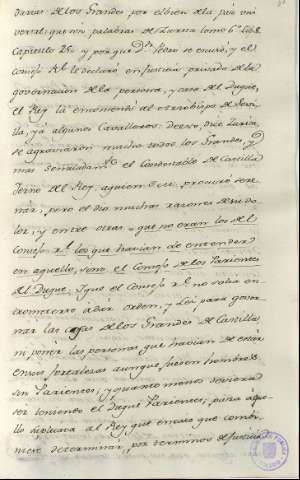 darse de los Grandes por el bien de la paz uni
versal: que son palabras de Zurita tomo 6º lib. 8
Capitulo 28. y por que Dn. Pedro se enojó, y el
Consejo Rl. le declaró en Justicia privado de la
governacion de la persona, y casa del Duque,
el Rey la encomendó al Arzobispo de Sevi
lla, y a algunos Cavalleros: de esto, dice Zurita,
se agraviaron mucho todos los Grandes, y
mas señaladamte. el Condestable de Castilla
Yerno del Rey a quien S.M. procuró sere
nar, pero el dio muchas razones de su do
lor, y entre otras = que no eran los del
Consejo Rl. los que havian de entender
en aquello, sino el Consejo de los Parientes
del Duque. Y que el Consejo Rl. no solia en
tremeterse á dar orden, y Ley para gover
nar las casas de los Grandes de Castilla,
ni poner las personas que havian de estár
en sus fortalezas aunque fuesen hombres
sin Parientes, y quanto menos deviera
ser teniendo el Duque Parientes; para aque
llo suplicava al Rey que en caso que combi
niese determinar, por terminos de Justicia